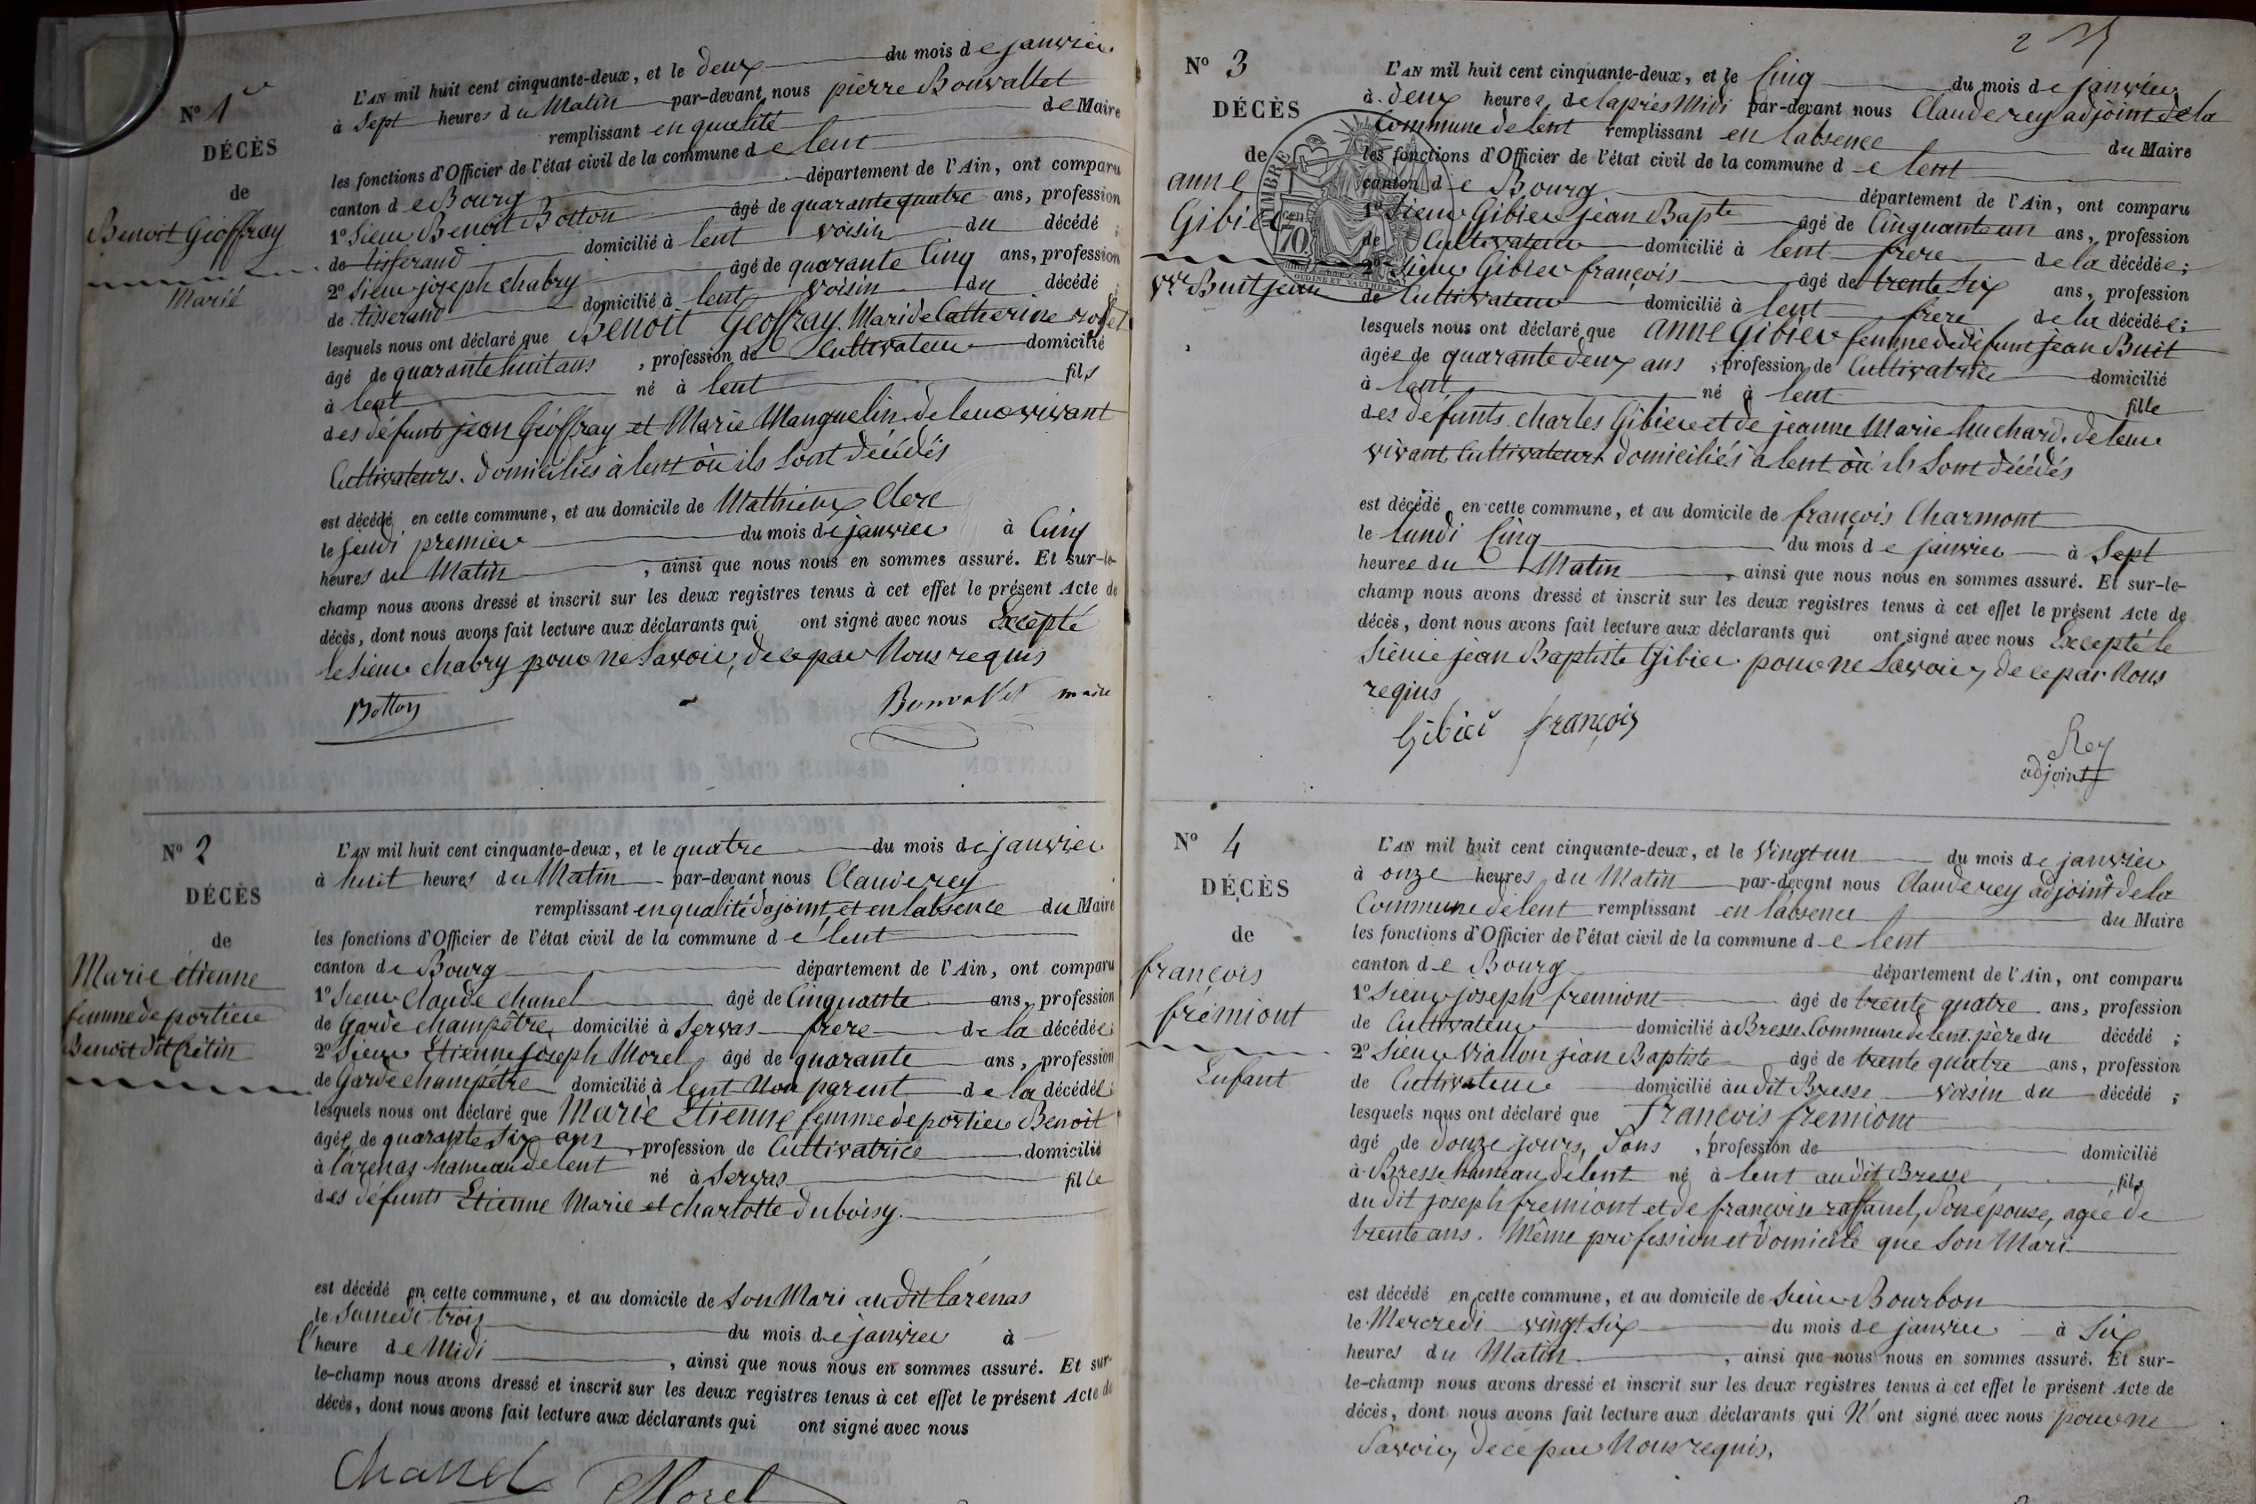 Nº 1er
DÉCÈS
de
Benoit Géoffray
Marié
L'AN mil huit cent cinquante-deux, et le deux du mois de janvier
à Sept heures du Matin par-devant nous pierre Bouvallet
remplissant en qualité de Maire
les fonctions d'Officier de l'état civil de la commune de lent
canton de Bourg département de l'Ain, ont comparu
1º Sieur Benoit Botton âgé de quarante quatre ans, profession
de tisserand domicilié à lent voisin du décédé ;
2º Sieur joseph Chabry âgé de quarante Cinq ans, profession
de tisserand domicilié à lent voisin du décédé ;
lesquels nous ont déclaré que Benoit Geoffray Mari de Catherine
âgé de quarante huit ans , profession de Cultivateur domicilié
à lent né à lent fils
des défunts jean Géoffray et Marie Manguelin de leur vivant
Cultivateurs. domiciliés à lent où ils sont décédés
est décédé en cette commune, et au domicile de Mathieux Clerc
le jeudi premier du mois de janvier à Cinq
heures du Matin , ainsi que nous nous en sommes assuré. Et sur-le-
champ nous avons dressé et inscrit sur les deux registres tenus à cet effet le présent Acte de
décès, dont nous avons fait lecture aux déclarants qui ont signé avec nous Excepté
le sieur Chabry pour ne Savoir, de ce par Nous requis
Botton
Bouvallet maire
Nº 2
DÉCÈS
de
Marie étienne
femme de portier
Benoit dit Crétin
L'AN mil huit cent cinquante-deux, et le quatre du mois de janvier
à huit heures du Matin par-devant nous Claude rey
remplissant en qualité d'ajoint et en l'absence du Maire
les fonctions d'Officier de l'état civil de la commune de lent
canton de Bourg département de l'Ain, ont comparu
1º Sieur Claude Chanel âgé de Cinquante ans, profession
de Garde Champêtre domicilié à Servas frere de la décédée ;
2º Sieur Etienne joseph Morel âgé de quarante ans, profession
de Garde champêtre domicilié à lent Non parent de la décédée ;
lesquels nous ont déclaré que Marie Etienne femme de portier Benoit
âgée de quarante Six ans profession de Cultivatrice domicilié
à larenas hameau de lent né à Servas fille
des défunts Etienne Marie et charlotte duboisy.
est décédé en cette commune, et au domicile de Son Mari audit larenas
le Samedi trois du mois de janvier à
l'heure de Midi , ainsi que nous nous en sommes assuré. Et sur-
le-champ nous avons dressé et inscrit sur les deux registres tenus à cet effet le présent Acte de
décès, dont nous avons fait lecture aux déclarants qui ont signé avec nous
Chanel Morel
2
Nº 3
DÉCÈS
de
anne
Gibier
Ve Buit jean
L'AN mil huit cent cinquante-deux, et le Cinq du mois de janvier
à deux heures de l'après Midi par-devant nous Claude rey adjoint de la
Commune de lent remplissant en l'absence du Maire
les fonctions d'Officier de l'état civil de la commune de lent
canton de Bourg département de l'Ain, ont comparu
1º Sieur Gibier jean Bapte âgé de Cinquante un ans, profession
de Cultivateur domicilié à lent frere de la décédée ;
2º Sieur Gibier françois âgé de trente Six ans, profession
de Cultivateur domicilié à lent frere de la décédée ;
lesquels nous ont déclaré que anne Gibier femme de défunt jean Buit
âgée de quarante deux ans , profession de Cultivatrice domicilié
à lent né à lent fille
des défunts charles Gibier et de jeanne Marie huchard. de leur
vivant Cultivateurs domiciliés à lent où ils sont décédés
est décédé en cette commune, et au domicile de françois Charmont
le lundi Cinq du mois de janvier à Sept
heures du Matin , ainsi que nous nous en sommes assuré. Et sur-le-
champ nous avons dressé et inscrit sur les deux registres tenus à cet effet le présent Acte de
décès, dont nous avons fait lecture aux déclarants qui ont signé avec nous Excepté le
Sieur jean Baptiste Gibier pour ne Savoir, de ce par Nous
requis
Gibier françois
Rey
adjoint
Nº 4
DÉCÈS
de
françois
frémiont
Enfant
L'AN mil huit cent cinquante-deux, et le Vingt un du mois de janvier
à onze heures du Matin par-devant nous Claude rey adjoint de la
Commune de lent remplissant en l'absence du Maire
les fonctions d'Officier de l'état civil de la commune de lent
canton de Bourg département de l'Ain, ont comparu
1º Sieur joseph fremiont âgé de trente quatre ans, profession
de Cultivateur domicilié à Bresse Commune de lent père du décédé ;
2º Sieur Viallon jean Baptiste âgé de trente quatre ans, profession
de Cultivateur domicilié audit Bresse voisin du décédé ;
lesquels nous ont déclaré que françois fremiont
âgé de douze jours, Sans , profession de domicilié
à Bresse hameau de lent né à lent audit Bresse fils
du dit joseph fremiont et de françoise raffanel, Son épouse, agée de
trente ans. Même profession et domicile que Son Mari
est décédé en cette commune, et au domicile de Sieur Bourbon
le Mercredi vingt Six du mois de janvier à Six
heures du Matin , ainsi que nous nous en sommes assuré. Et sur-
le-champ nous avons dressé et inscrit sur les deux registres tenus à cet effet le présent Acte de
décès, dont nous avons fait lecture aux déclarants qui N'ont signé avec nous pour ne
Savoir, de ce par Nous requis,